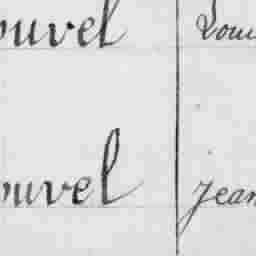 ouvel Loui
ouvel Jean